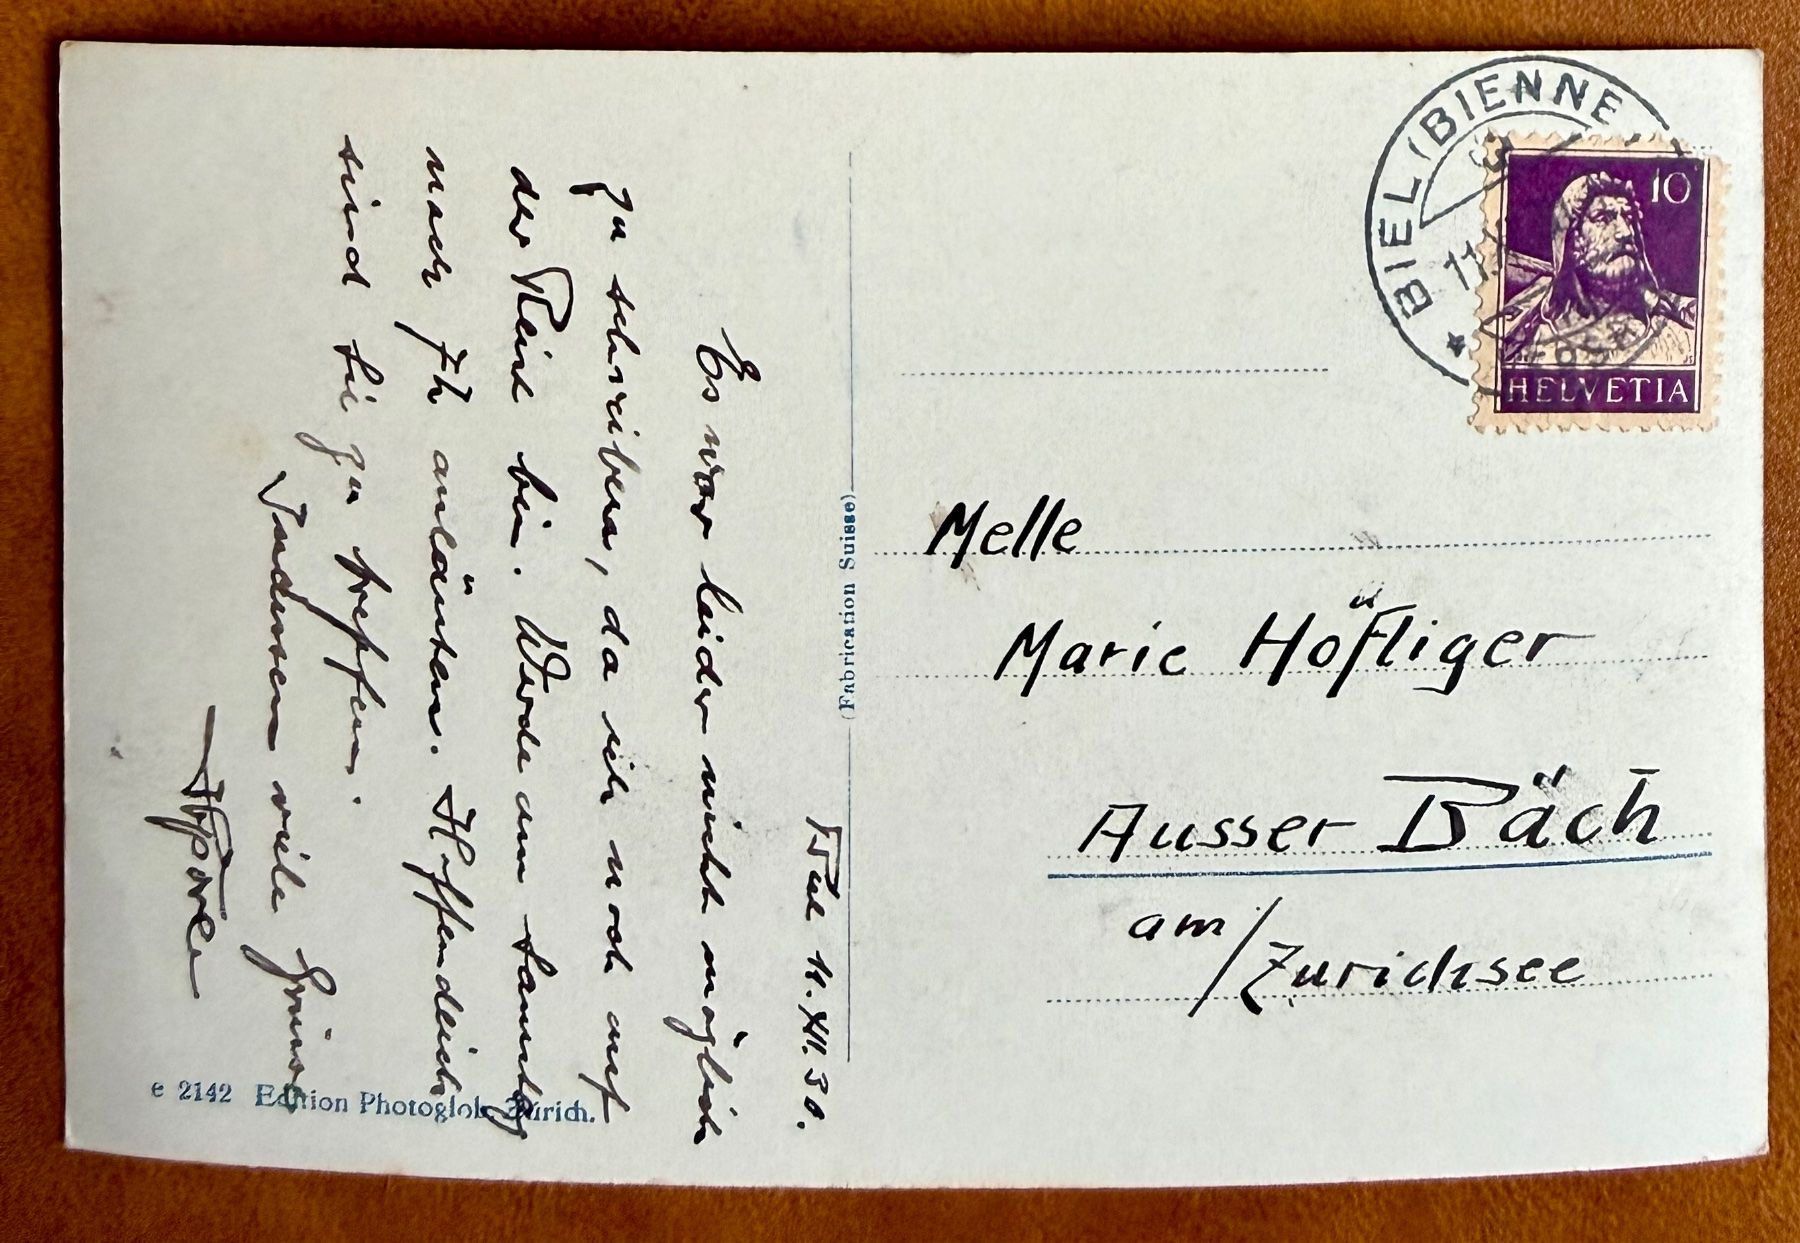 Biel 11. XII. 30.
Es war leider nicht möglich
zu schreiben, da ich noch auf
der Reise bin. Werde am Samstag
nach 7h anläuten. Hoffendlich
sind Sie zu treffen.
Indessen viele Grüsse
BIEL (BIENNE
11
10
HELVETIA
Melle
Marie Höfliger
Ausser Bäch
am/Zürichsee
(Fabrication Suisse)
e 2142 Edition Photoglob, Zürich.